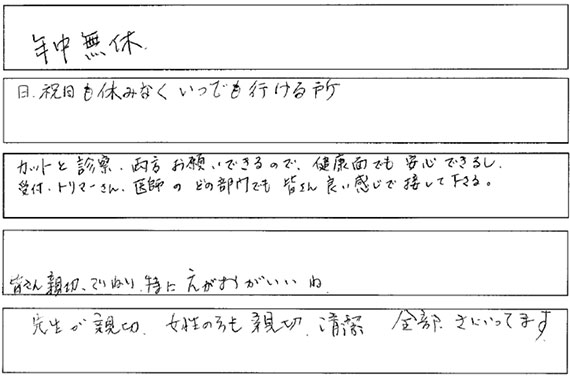 年中無休.
日.祝日も休みなくいつでも行ける所
カットと診察.両方お願いできるので、健康面でも安心できるし.
受付.トリマーさん.医師のどの部門でも皆さん良い感じで接して下さる。
皆さん親切、ていねい.特にえがおがいいね.
先生が親切.女性の子も親切.清潔 全部きにいってます